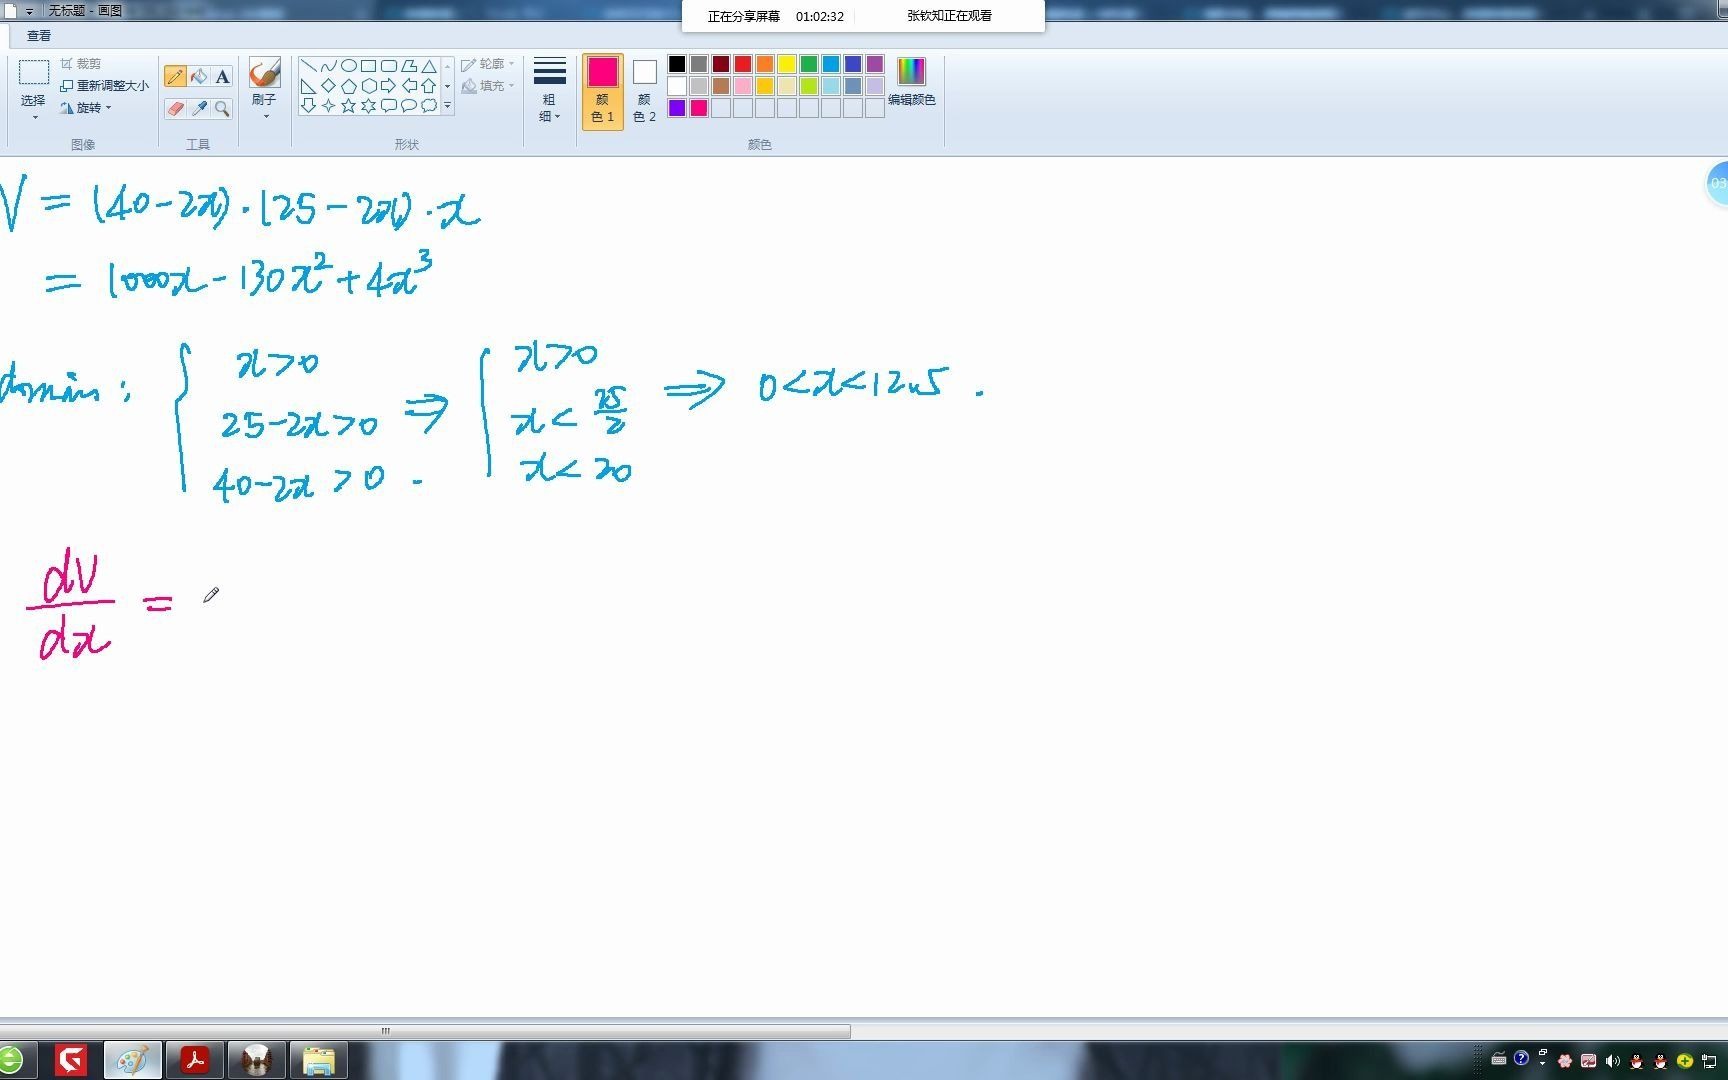 无标题 - 画图
正在分享屏幕 01:02:32 张钦知正在观看
查看
选择
裁剪
重新调整大小
旋转
图像
A
工具
刷子
轮廓
填充
形状
粗细
颜色 1
颜色 2
编辑颜色
颜色
03
V = (40-2x)·(25-2x)·x
= 1000x-130x²+4x³
domain:
x>0
25-2x>0
40-2x>0 .
⇒
x>0
x< 25/2
x<20
⇒ 0<x<12.5 .
dV/dx =